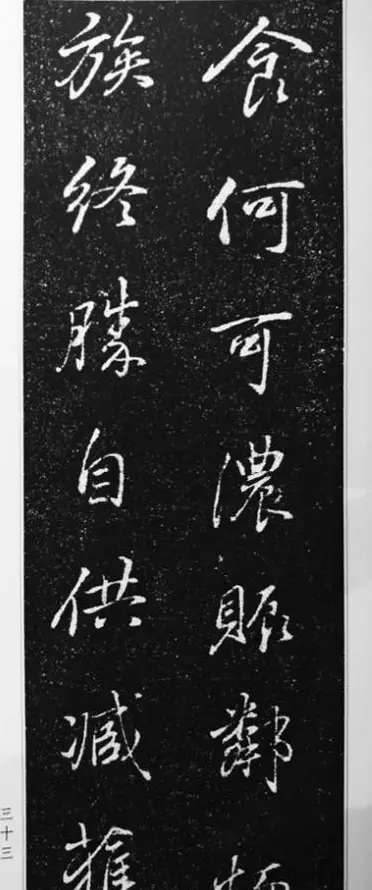 食何可濃賑鄰
族終勝自供減
三十三